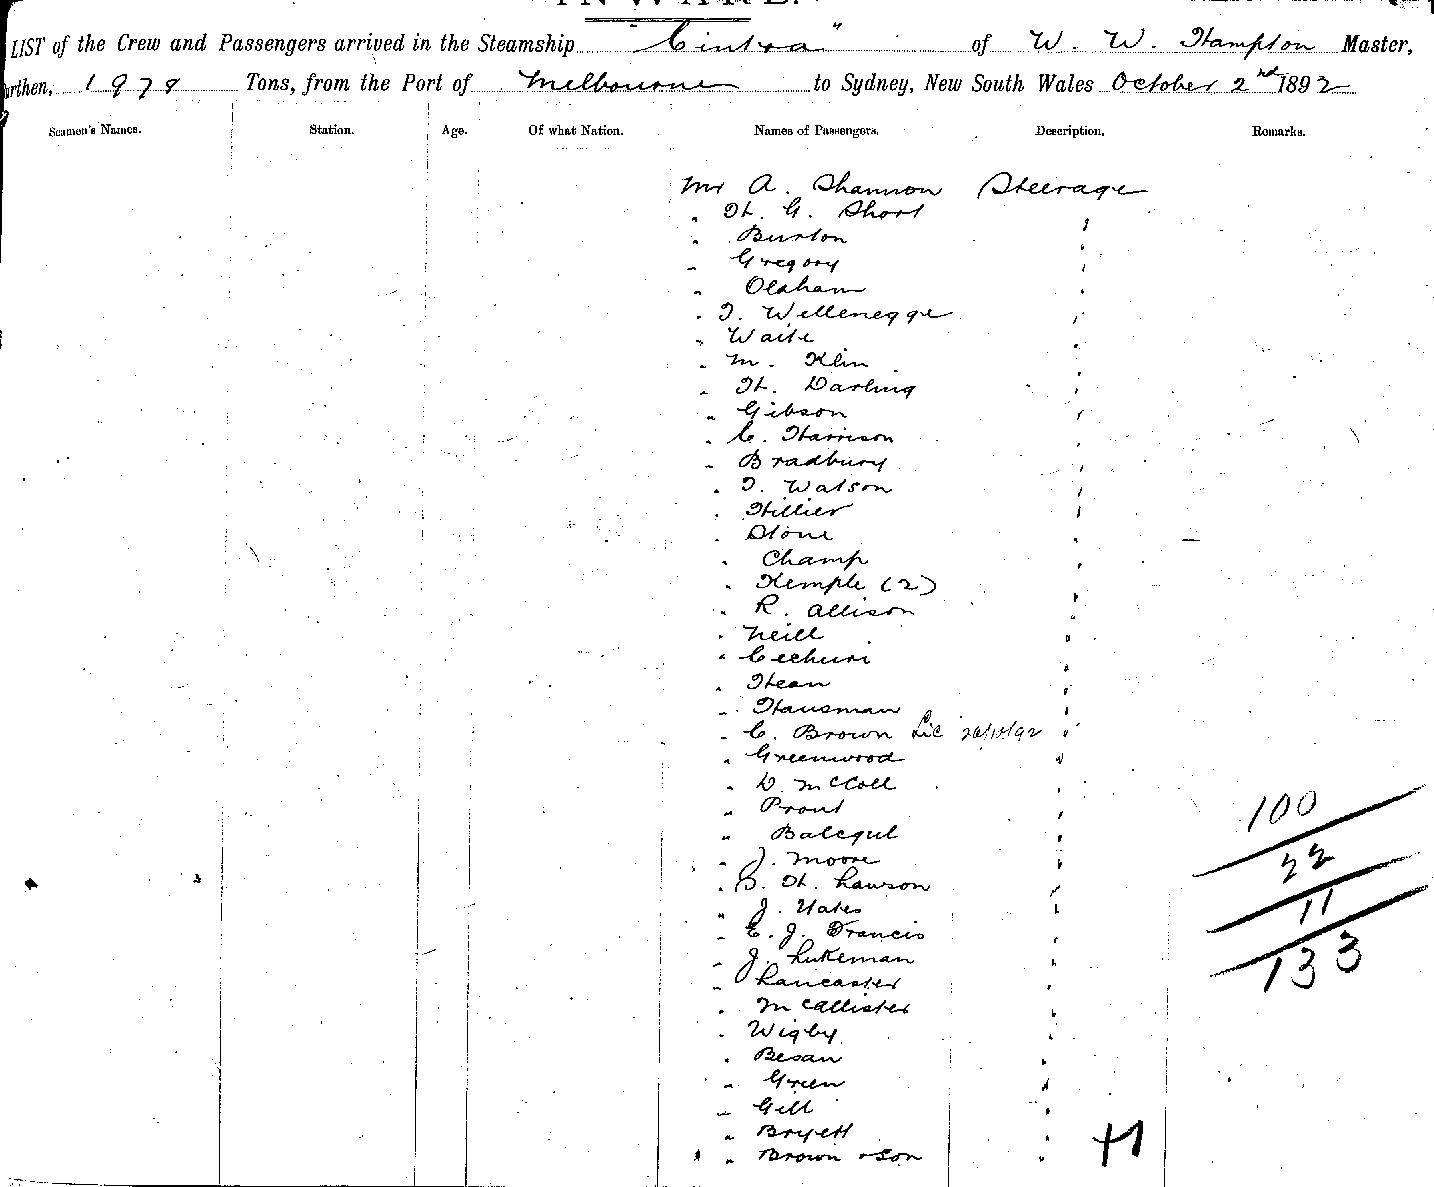 INWARD.
LIST of the Crew and Passengers arrived in the Steamship "Cintra" of W. W. Hampton Master,
urthen, 1979 Tons, from the Port of Melbourne to Sydney, New South Wales October 2nd 1892
Seamen's Names. Station. Age. Of what Nation. Names of Passengers. Description. Remarks.
Mr A. Shannon Steerage
" H. G. Short "
" Burton "
" Gregory "
" Oldham "
" T. Wellenegge "
" Waite "
" M. Klin "
" H. Darling "
" Gibson "
" C. Harrison "
" Bradbury "
" T. Watson "
" Hillier "
" Stone "
" Champ "
" Kemple (2) "
" R. Allison "
" Neill "
" Cechini "
" Hean "
" Hausman "
" C. Brown Lic "
" Greenwood "
" D. McColl "
" Prout "
" Balegul "
" J. Moore "
" S. H. Lawson "
" J. Yates "
" E. J. Francis "
" J. Lukeman "
" Lancaster "
" McCallister "
" Wigby "
" Besan "
" Green "
" Gill "
" Bryett "
" Brown & Son "
100
22
11
133